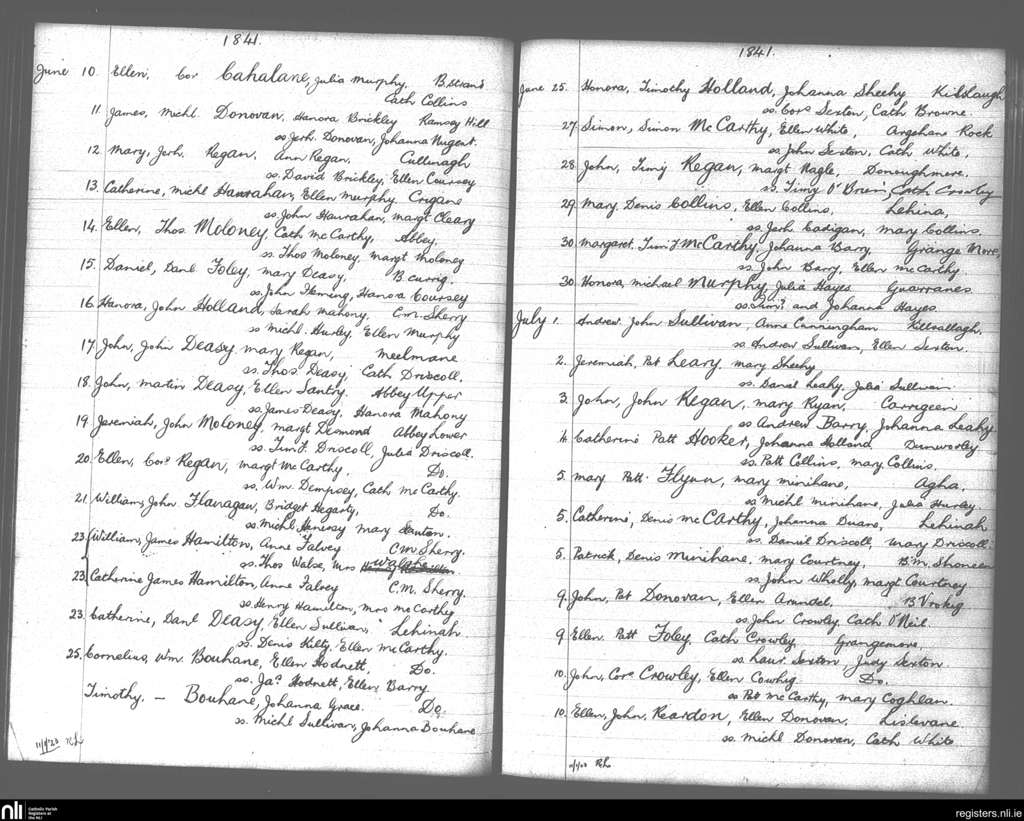 1841.
June 10. Ellen, Cor Cahalane, Julia Murphy, B. Strand
Cath Collins
11. James, Michl. Donovan, Hanora Brickley Ramsey Hill
ss Jerh. Donovan, Johanna Nugent.
12. Mary, Jerh. Regan, Ann Regan, Cullenagh
ss. David Brickley, Ellen Coursey
13. Catherine, Michl Hanrahan, Ellen Murphy Crigane
ss. John Hanrahan, Margt Cleary
14. Ellen, Thos. Moloney, Cath McCarthy, Abbey.
ss. Thos Moloney, Margt Moloney
15. Daniel, Danl Foley, Mary Deasy, B currig.
ss. John Fleming, Hanora Coursey
16. Hanora, John Holland, Sarah Mahony, C.M. Sherry
ss Michl. Hurley, Ellen Murphy
17. John, John Deasy, Mary Regan, Meelmane
ss. Thos. Deasy, Cath Driscoll.
18. John, Martin Deasy, Ellen Santry. Abbey Upper
ss. James Deasy, Hanora Mahony
19 Jeremiah, John Moloney, Margt Desmond Abbey Lower
ss. Timy. Driscoll, Julia Driscoll.
20. Ellen, Cors Regan, Margt McCarthy. Do.
ss. Wm. Dempsey, Cath McCarthy.
21. William, John Flanagan, Bridget Hegarty, Do.
ss Michl Henessy Mary Stanton.
23. William, James Hamilton, Anne Falvey C.M. Sherry.
ss. Thos Walse, Mrs Walshe
23. Catherine James Hamilton, Anne Falvey C.M. Sherry.
ss. Henry Hamilton, Mrs McCarthy
23. Catherine, Danl Deasy, Ellen Sullivan, Lehinah.
ss. Denis Kilty, Ellen McCarthy.
25. Cornelius, Wm. Bouhane, Ellen Hodnett, Do.
ss. Jas. Hodnett, Ellen Barry.
Timothy. — Bouhane, Johanna Grace. Do.
ss. Michl Sullivan, Johanna Bouhane
1841.
June 25. Honora, Timothy Holland, Johanna Sheehy Kilslaugh
ss. Cors Sexton, Cath Browne.
27. Simon, Simon McCarthy, Ellen White, Argehane Rock
ss. John Sexton, Cath White.
28. John, Timy Regan, Margt Nagle, Donoughmore.
ss. Timy O'Brien, Cath Crowley
29. Mary, Denis Collins, Ellen Collins, Lehina,
ss. Jerh Cadigan, Mary Collins.
30. Margaret. Timy McCarthy, Johanna Barry Grange More,
ss. John Barry, Ellen McCarthy.
30. Honora, Michael Murphy, Julia Hayes Guarranes.
ss. Timy and Johanna Hayes.
July 1. Andrew John Sullivan, Anne Cunningham Killvallagh,
ss. Andrew Sullivan, Ellen Sexton.
2. Jeremiah, Pat Leary, Mary Sheehy
ss. Danal Leahy, Julia Sullivan
3. John, John Regan, Mary Ryan, Carrigeen
ss Andrew Barry, Johanna Leahy
4. Catherine Patt Hooker, Johanna Holland Dunworley
ss. Patt Collins, Mary Collins.
5. Mary Patt. Flynn, Mary Minihane, Agha.
ss Michl Minihane, Julia Hurley.
5. Catherine, Denis McCarthy, Johanna Duane, Lehinah
ss. Daniel Driscoll, Mary Driscoll.
5. Patrick, Denis Minihane, Mary Courtney, B.M. Shoneen
ss. John Wholly, Margt Courtney
9. John, Pat Donovan, Ellen Arundel, B Vrokig
ss John Crowley, Cath O'Neil.
9. Ellen. Patt Foley, Cath Crowley, Grangemore,
ss. Laur. Sexton, Judy Sexton
10. John, Cors Crowley, Ellen Cowhig. Do.
ss Patt McCarthy, Mary Coghlan.
10. Ellen, John, Reardon, Ellen Donovan, Lislevane
ss. Michl Donovan, Cath White
nli
Catholic Parish
Registers at
the NLI
registers.nli.ie